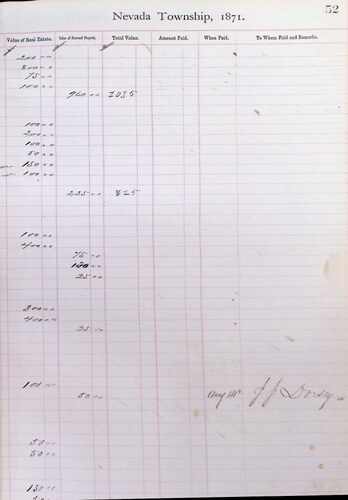 Nevada Township, 1871.
52
Value of Real Estate. Value of Personal Property. Total Value. Amount Paid. When Paid. To Whom Paid and Remarks.
200 --
800 --
75 --
100 --
960 -- 2035
100 --
200 --
100 --
50 --
150 --
100 --
225 -- 825
100 --
400 --
75 --
130 --
25 --
300 --
400 --
25 --
100 --
50 -- Aug J J Dorsey
50 --
50 --
150 --